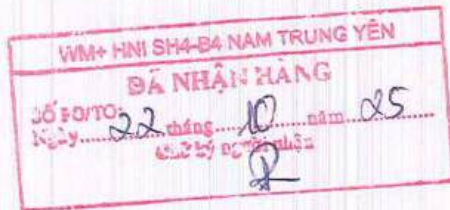 WM+ HNI SH4-B4 NAM TRUNG YÊN
ĐÃ NHẬN HÀNG
SỐ PO/TO:
Ngày.....22..tháng.....10.....năm..25.....
Chữ ký người nhận